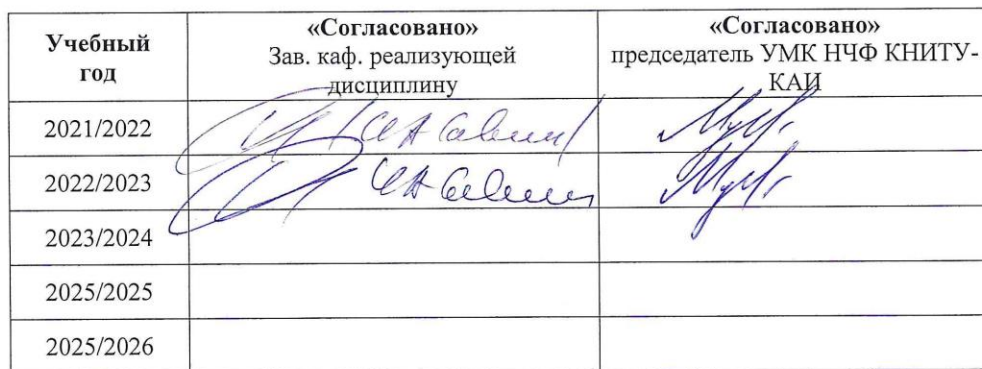 Учебный год
«Согласовано»
Зав. каф. реализующей
дисциплину
«Согласовано»
председатель УМК НЧФ КНИТУ-
КАИ
2021/2022
2022/2023
2023/2024
2025/2025
2025/2026